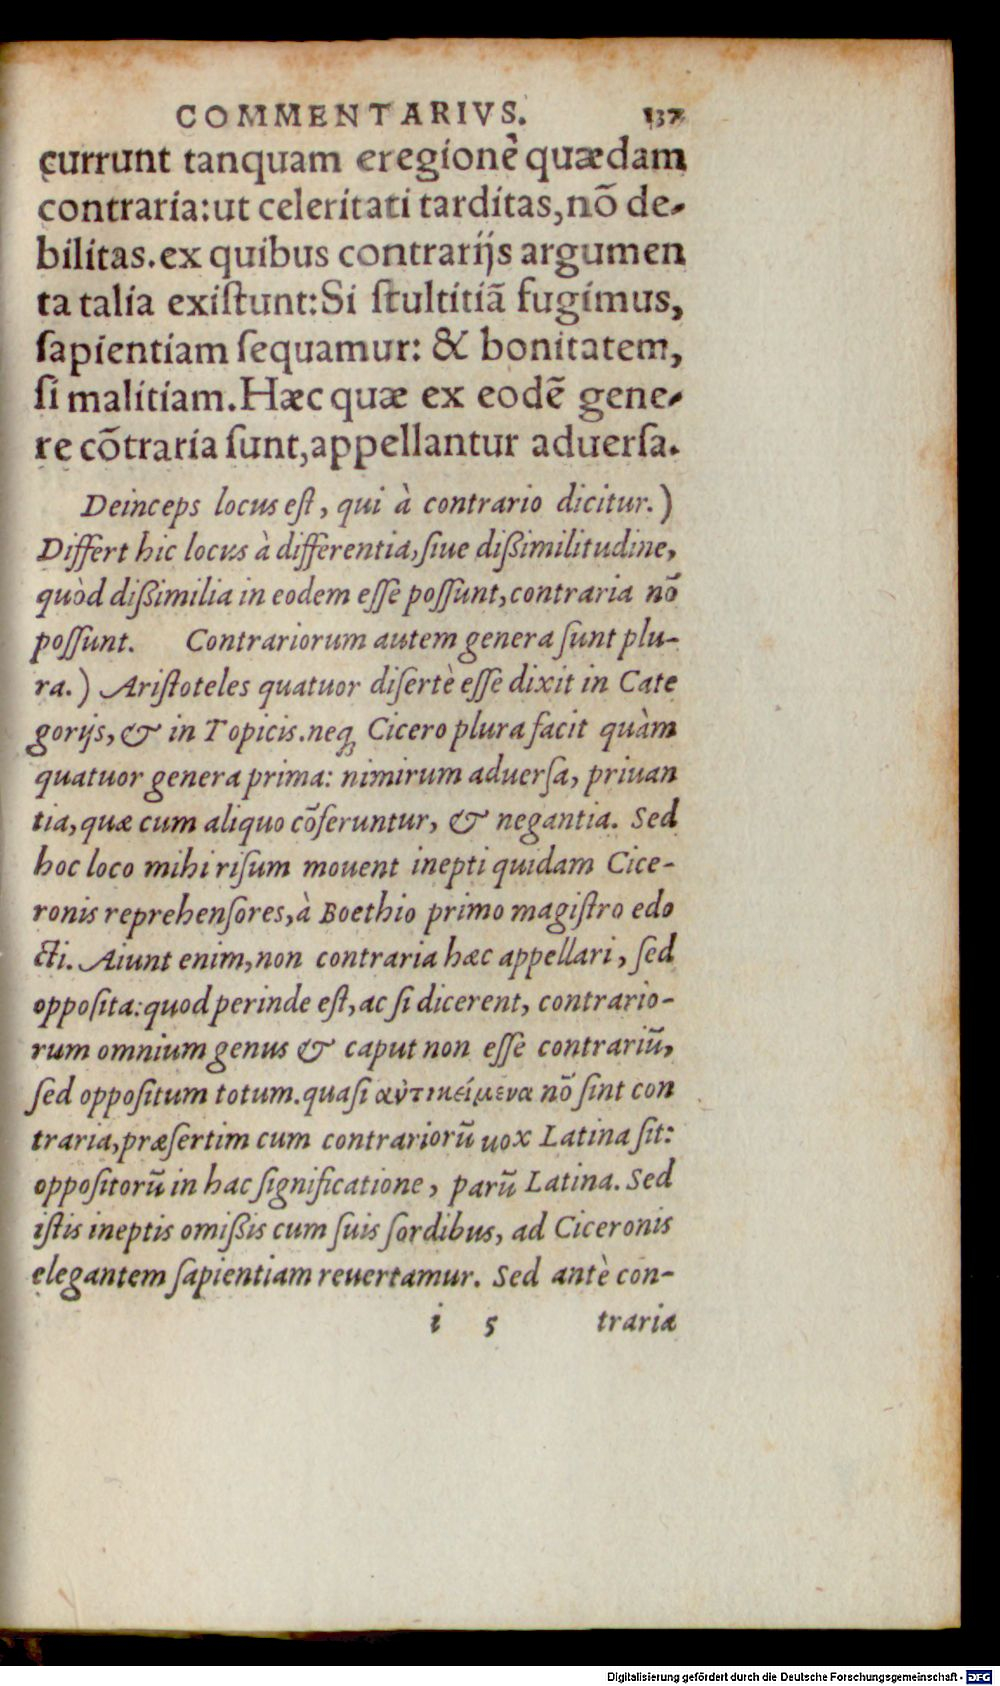 COMMENTARIVS. 137
currunt tanquam eregionè quædam
contraria:ut celeritati tarditas,nō de-
bilitas.ex quibus contrarijs argumen
ta talia exiſtunt:Si ſtultitiā fugimus,
ſapientiam ſequamur: & bonitatem,
ſi malitiam.Hæc quæ ex eodē gene-
re cōtraria ſunt,appellantur aduerſa.
Deinceps locus eſt, qui à contrario dicitur.)
Differt hic locus à differentia,ſiue dißimilitudine,
quòd dißimilia in eodem eſſe poſſunt,contraria nō
poſſunt. Contrariorum autem genera ſunt plu-
ra.) Ariſtoteles quatuor diſertè eſſe dixit in Cate
gorijs, & in Topicis.neqꝫ Cicero plura facit quàm
quatuor genera prima: nimirum aduerſa, priuan
tia,quæ cum aliquo cōferuntur, & negantia. Sed
hoc loco mihi riſum mouent inepti quidam Cice-
ronis reprehenſores,à Boethio primo magiſtro edo
cti. Aiunt enim,non contraria hæc appellari, ſed
oppoſita:quod perinde eſt,ac ſi dicerent, contrario-
rum omnium genus & caput non eſſe contrariū,
ſed oppoſitum totum.quaſi αὐτικείμενα nō ſint con
traria,præſertim cum contrariorū uox Latina ſit:
oppoſitorū in hac ſignificatione, parū Latina. Sed
iſtis ineptis omißis cum ſuis ſordibus, ad Ciceronis
elegantem ſapientiam reuertamur. Sed antè con-
i 5 traria
Digitalisierung gefördert durch die Deutsche Forschungsgemeinschaft - DFG